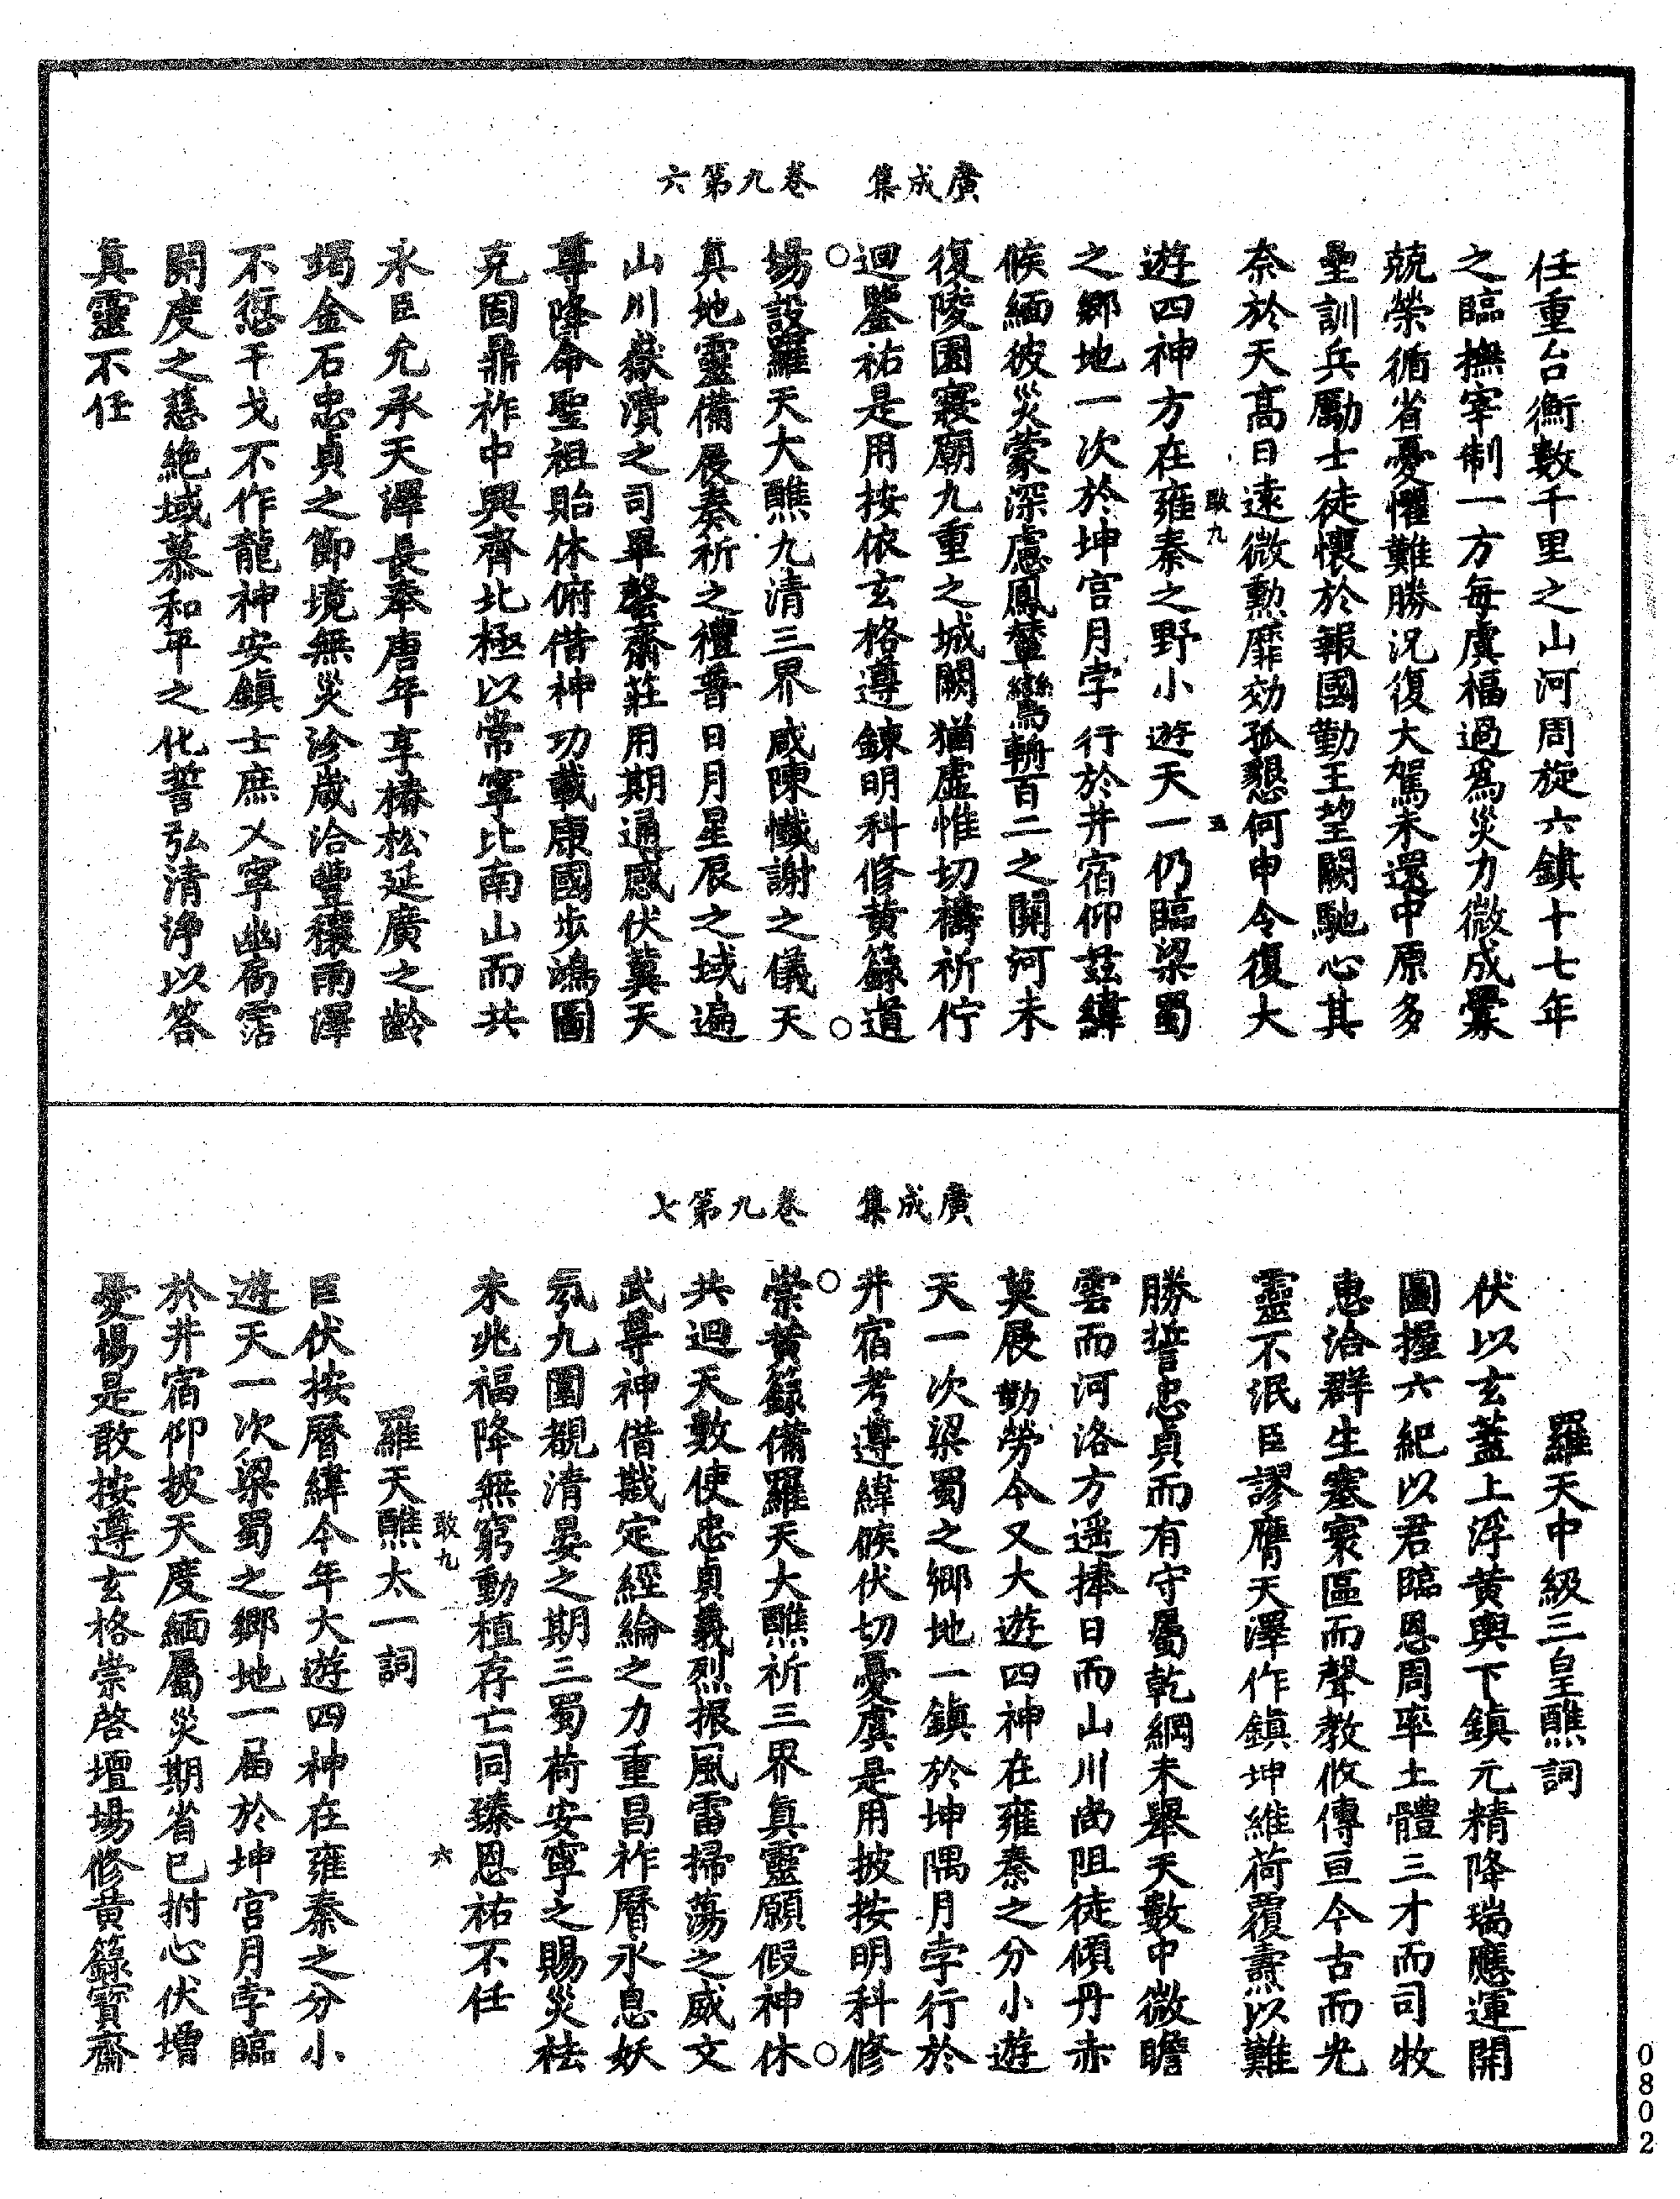 廣成集　卷九第六
任重台衡數千里之山河周旋六鎮十七年
之臨撫宰制一方每虞福過為災力微成釁
兢榮循省憂懼難勝況復大駕未還中原多
壘訓兵勵士徒懷於報國勤王望闕馳心其
奈於天高日遠微勲靡効孤懇何申今復大
敢九　五
遊四神方在雍秦之野小遊天一仍臨梁蜀
之鄉地一次於坤宮月孛行於井宿仰茲緯
候緬彼災蒙深慮鳳輦鸞輈百二之關河未
復陵園寢廟九重之城闕猶虛惟切禱祈佇
迴鑒祐是用按依玄格遵鍊明科修黃籙道
場設羅天大醮九清三界咸陳懺謝之儀天
真地靈備展奏祈之禮普日月星辰之域遍
山川嶽瀆之司畢罄齋莊用期通感伏冀天
尊降命聖祖貽休俯借神功載康國步鴻圖
克固鼎祚中興齊北極以常寧比南山而共
永臣允承天澤長奉唐年享椿松延廣之齡
竭金石忠貞之節境無災沴歲洽豐穰雨澤
不愆干戈不作龍神安鎮士庶乂寧幽局霑
開度之慈絕域慕和平之化誓弘清淨以答
真靈不任
廣成集　卷九第七
羅天中級三皇醮詞
伏以玄蓋上浮黃輿下鎮元精降瑞應運開
圖握六紀以君臨恩周率土體三才而司牧
惠洽群生塞寰區而聲教攸傳亘今古而光
靈不泯臣謬膺天澤作鎮坤維荷覆燾以難
勝誓忠貞而有守屬乾綱未舉天數中微瞻
雲而河洛方遥捧日而山川尚阻徒傾丹赤
莫展勤勞今又大遊四神在雍秦之分小遊
天一次梁蜀之鄉地一鎮於坤隅月孛行於
井宿考遵緯候伏切憂虞是用披按明科修
崇黃籙備羅天大醮祈三界真靈願假神休
共迴天數使忠貞義烈振風雷掃蕩之威文
武尊神借戡定經綸之力重昌祚曆永息妖
氛九圍覩清晏之期三蜀荷安寧之賜災祛
未兆福降無窮動植存亡同臻恩祐不任
敢九　六
羅天醮太一詞
臣伏按曆緯今年大遊四神在雍秦之分小
遊天一次梁蜀之鄉地一屆於坤宮月孛臨
於井宿仰披天度緬屬災期省己拊心伏增
憂惕是敢按遵玄格崇啓壇場修黃籙寶齋
0802